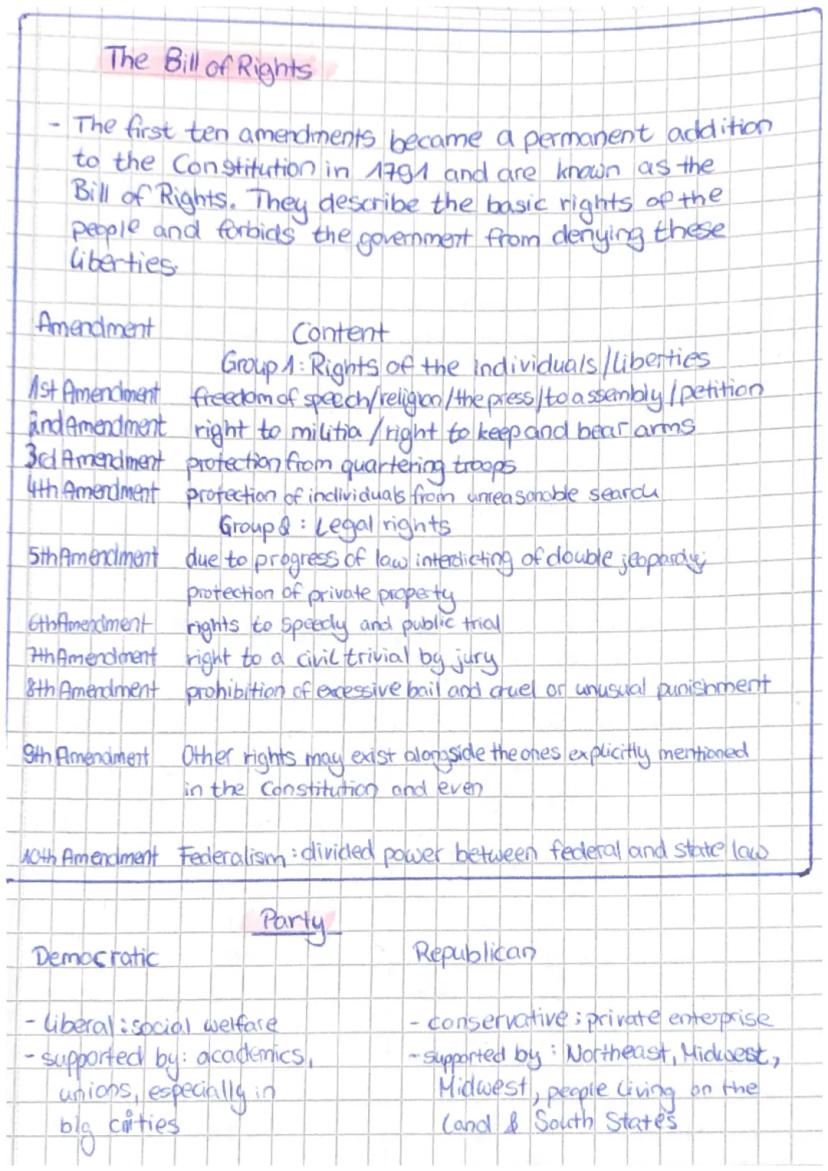 The Bill of Rights
- The first ten amendments became a permanent addition
to the Constitution in 1791 and are known as the
Bill of Rights. They describe the basic rights of the
people and forbids the government from denying these
liberties.
Amendment Content
Group 1: Rights of the individuals/liberties
1st Amendment freedom of speech/religion/the press/to assembly/petition
2nd Amendment right to militia/right to keep and bear arms
3rd Amendment protection from quartering troops
4th Amendment protection of individuals from unreasonable search
Group 2: Legal rights
5th Amendment due to progress of law interdicting of double jeopardy;
protection of private property
6th Amendment rights to speedy and public trial
7th Amendment right to a civil trivial by jury
8th Amendment prohibition of excessive bail and cruel or unusual punishment
9th Amendment Other rights may exist alongside the ones explicitly mentioned
in the Constitution and even
10th Amendment Federalism: divided power between federal and state law
Party
Democratic Republican
- liberal: social welfare - conservative: private enterprise
- supported by: academics, - supported by: Northeast, Midwest,
unions, especially in Midwest, people living on the
big cities Land & South States